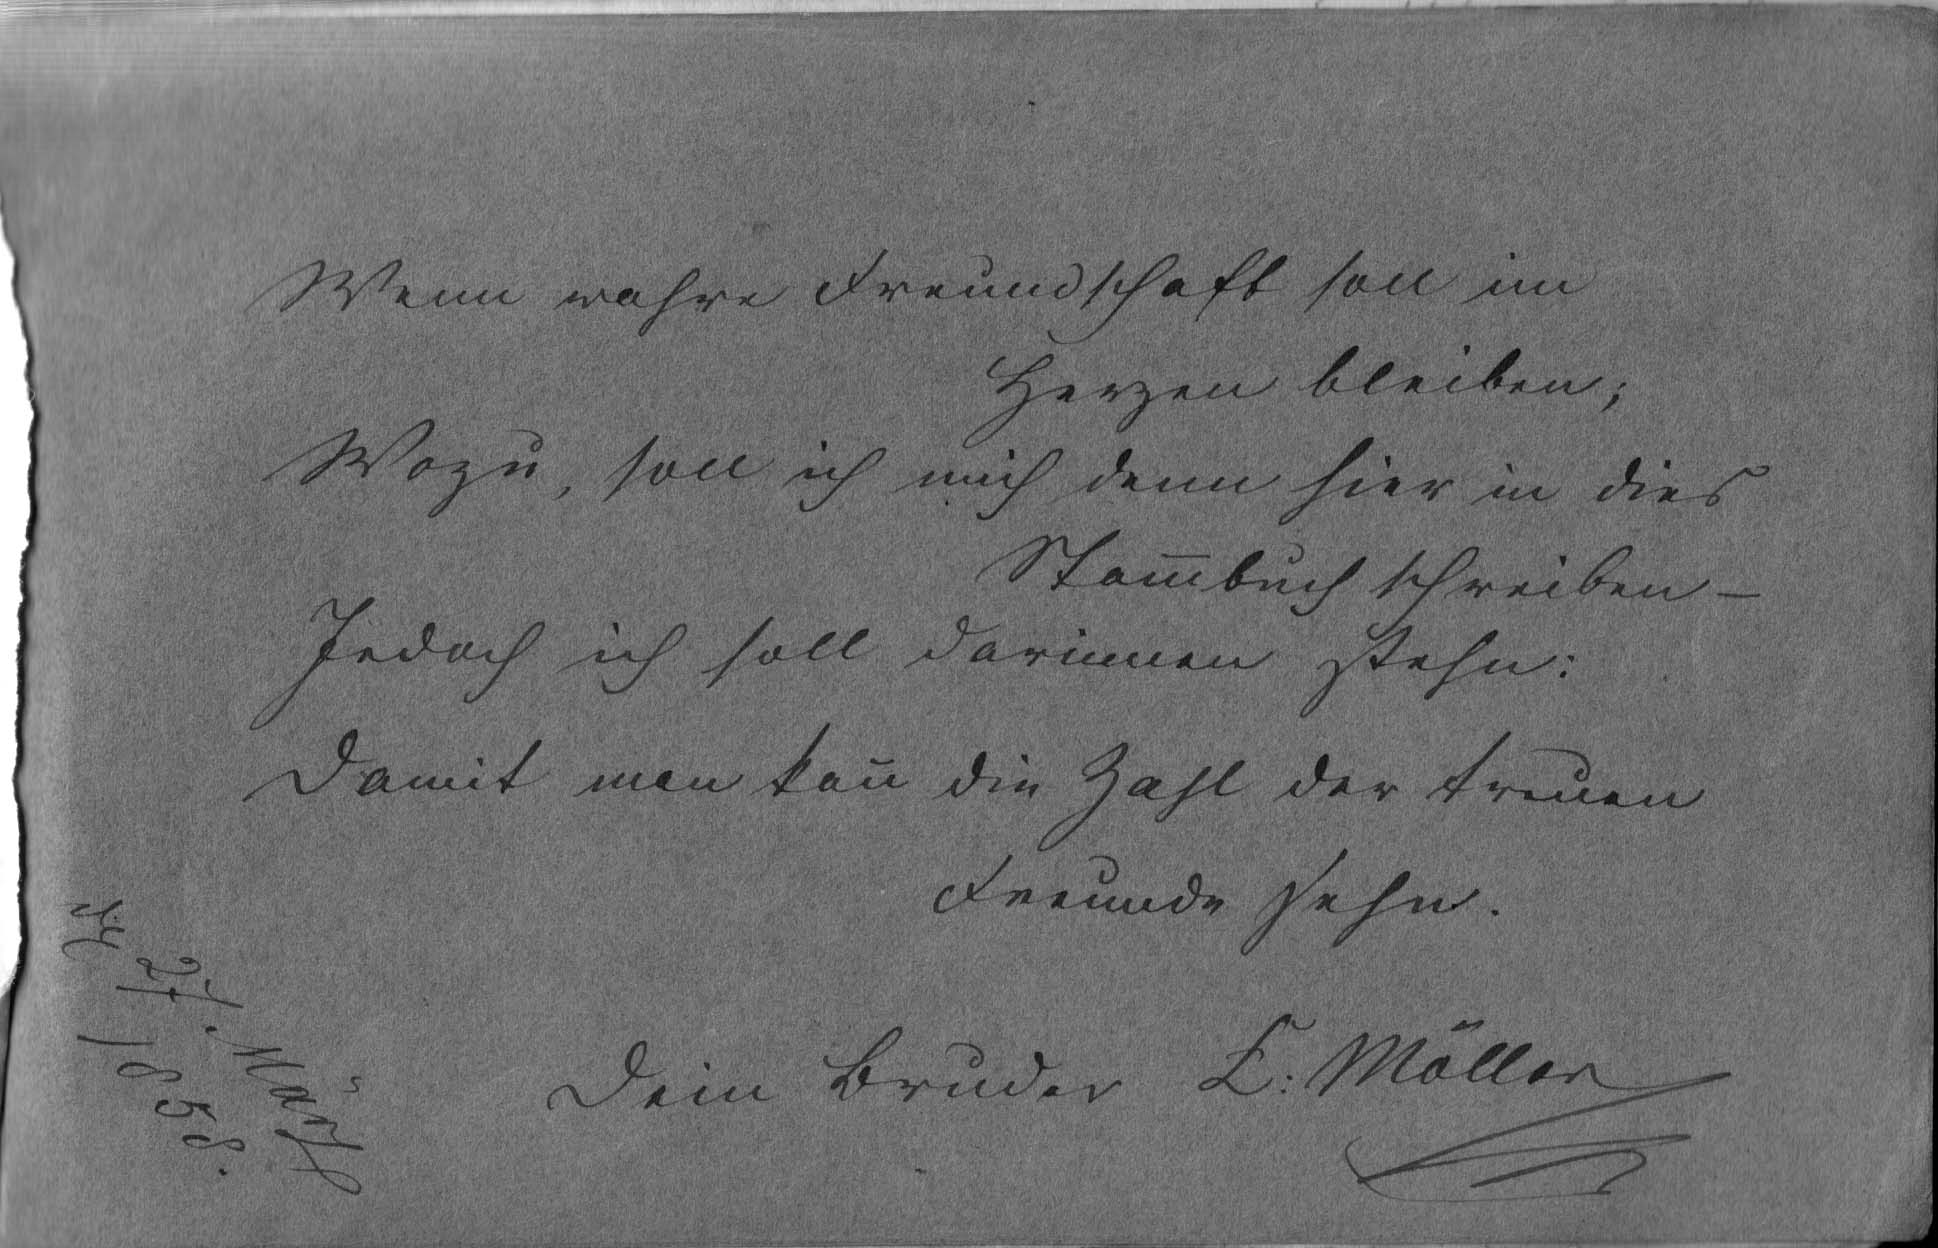 Wenn wahre Freundschaft soll im
Herzen bleiben;
Wozu, soll ich mich denn hier in dies
Stam̅buch schreiben –
Jedoch ich soll darinnen stehn:
Damit man kan̅ die Zahl der treuen
Freunde sehn.
Dein Bruder C: Möller
27. März
1858.